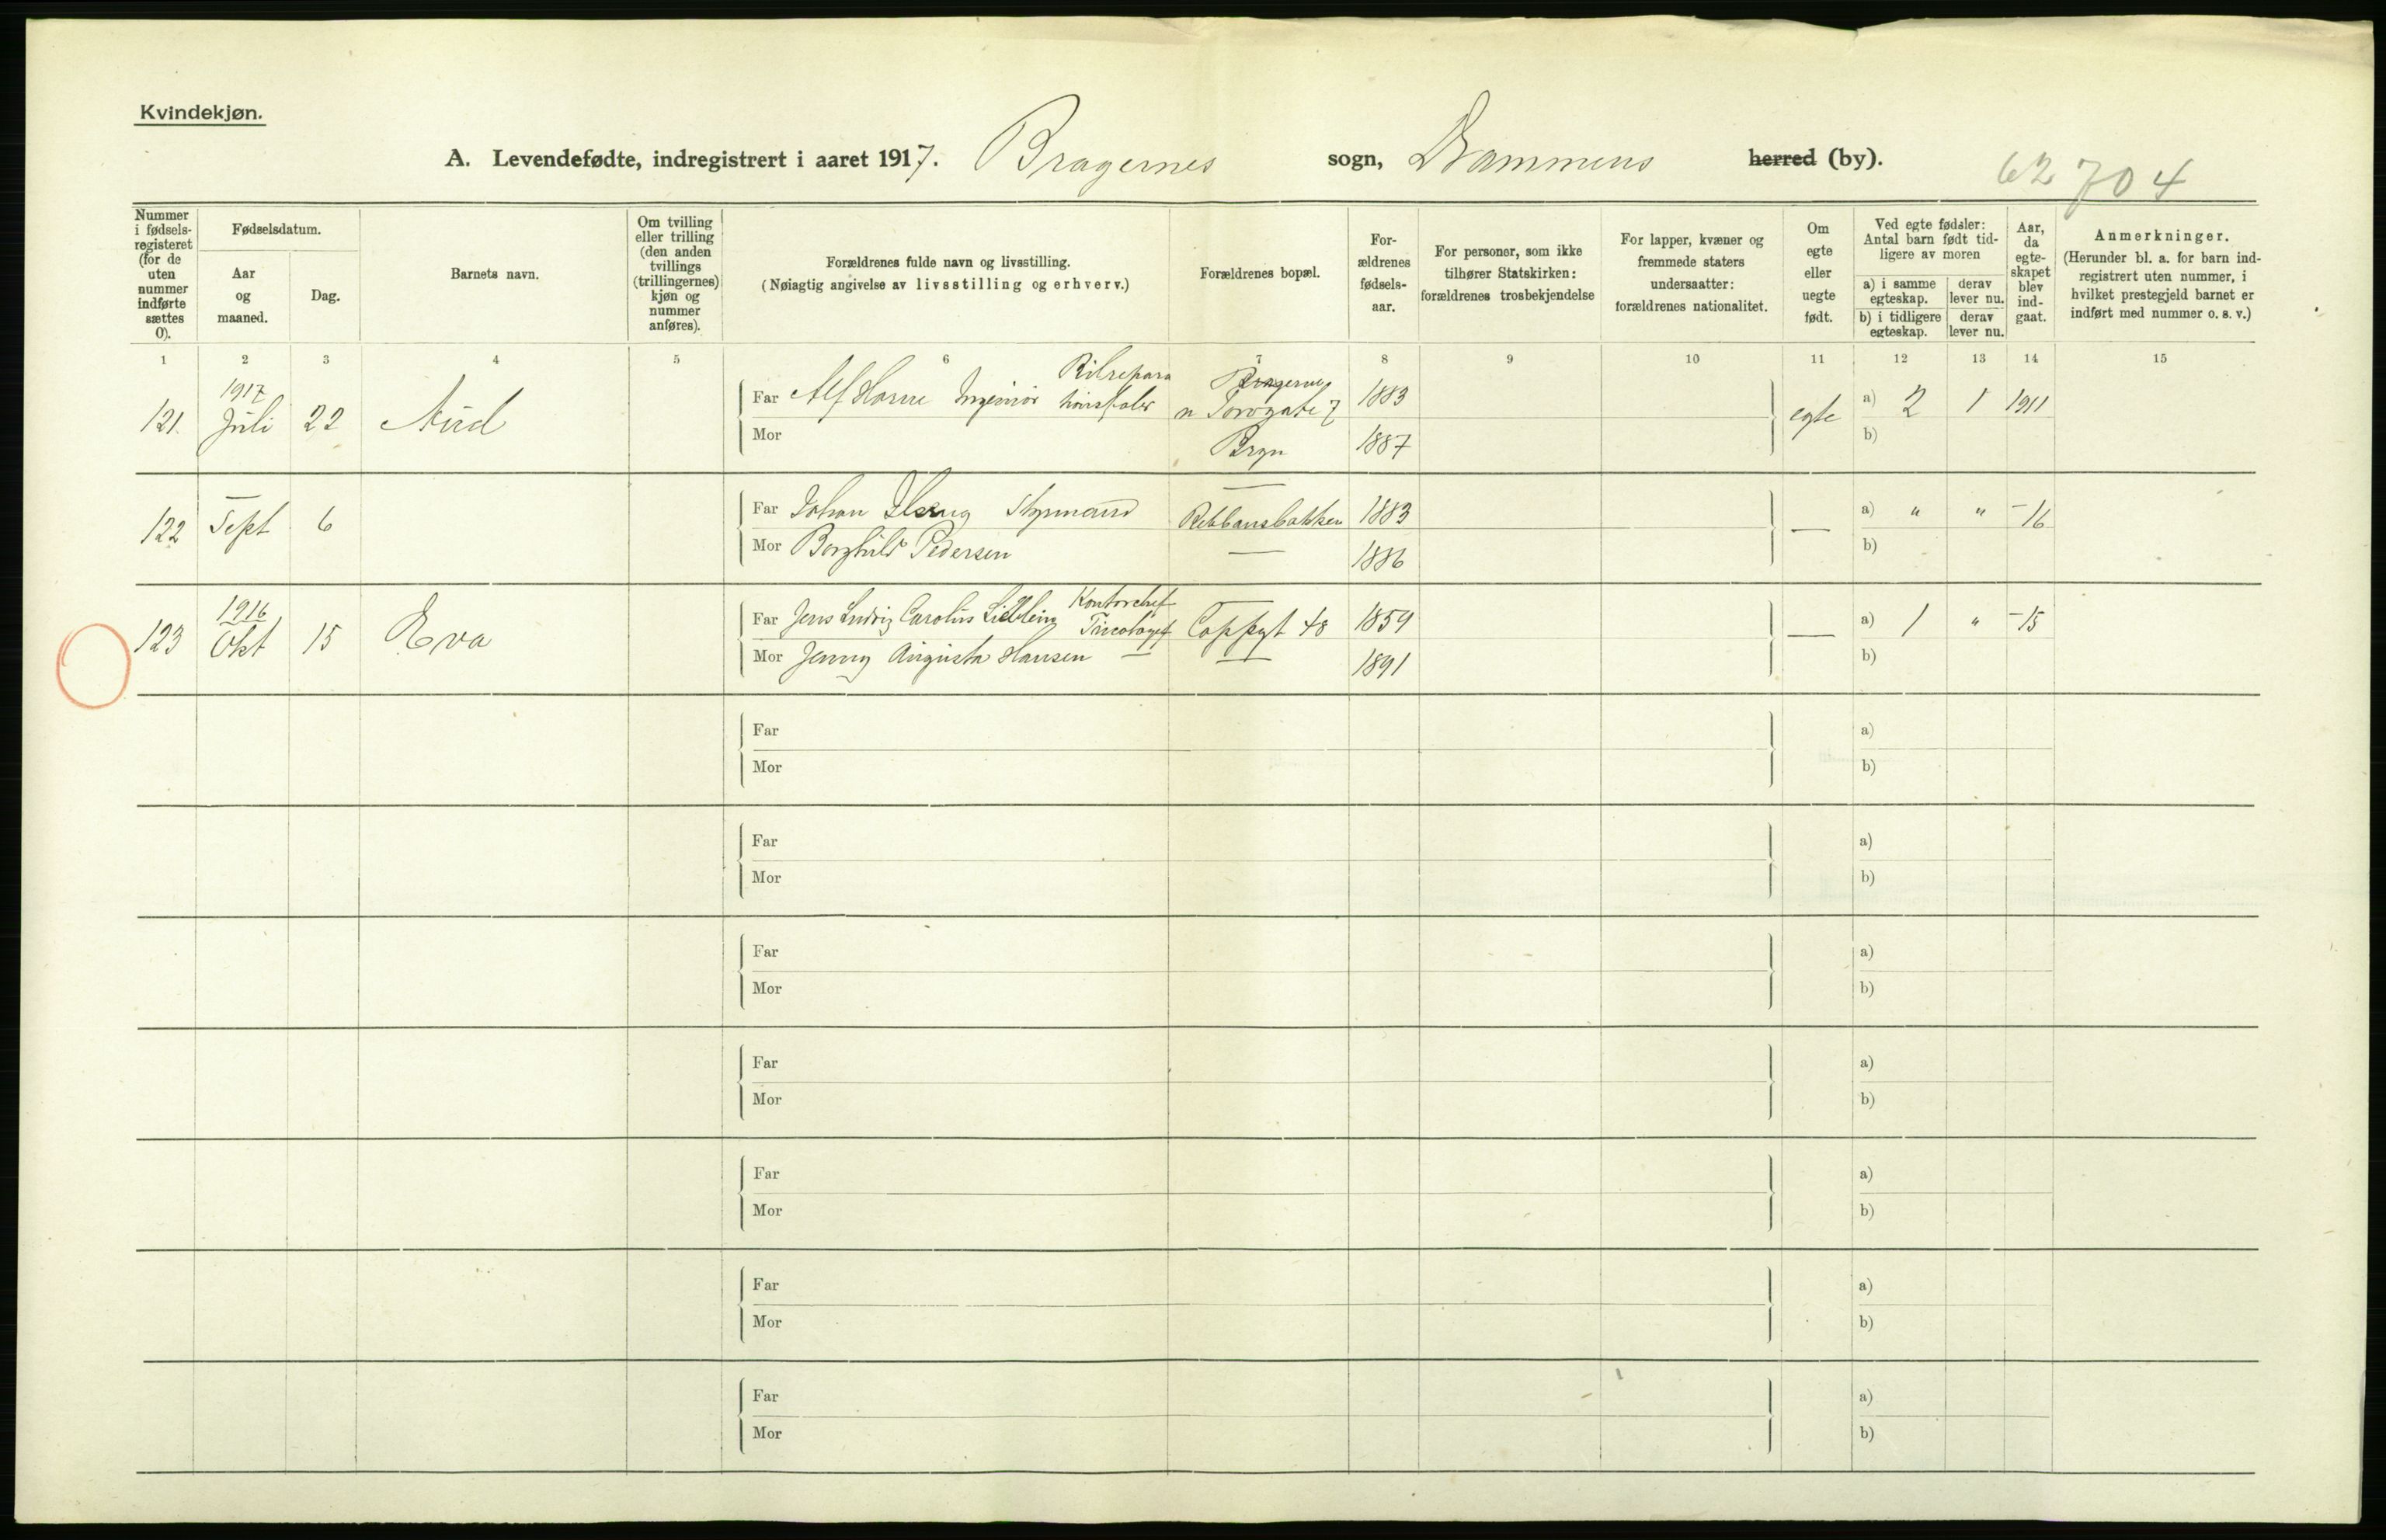 Kvindekjøn.
A. Levendefødte, indregistrert i aaret 1917. Bragernes sogn, Drammens herred (by).
62704
Nummer i fødsels-registeret (for de uten nummer indførte sættes 0).
Fødselsdatum.
Aar og maaned.
Dag.
Barnets navn.
Om tvilling eller trilling (den anden tvillings (trillingernes) kjøn og nummer anføres).
Forældrenes fulde navn og livsstilling.
(Nøiagtig angivelse av livsstilling og erhverv.)
Forældrenes bopæl.
For-ældrenes fødsels-aar.
For personer, som ikke tilhører Statskirken: forældrenes trosbekjendelse
For lapper, kvæner og fremmede staters undersaatter: forældrenes nationalitet.
Om egte eller uegte født.
Ved egte fødsler: Antal barn født tid-ligere av moren
a) i samme egteskap.
derav lever nu.
b) i tidligere egteskap.
derav lever nu.
Aar, da egte-skapet blev ind-gaat.
Anmerkninger.
(Herunder bl. a. for barn ind-registrert uten nummer, i hvilket prestegjeld barnet er indført med nummer o. s. v.)
1 2 3 4 5 6 7 8 9 10 11 12 13 14 15
121. 1917 Juli 22 Aud
Far Alf Ingeniør Bragernes n Torvgate 7 1883
Mor Brgn 1887
egte a) 2 1 1911
b)
122 Sept 6
Far Johan Styrmand 1883
Mor Borghild Pedersen — 1886
— a) " " -16
b)
123 1916 Okt 15 Eva
Far Jens Ludvig Carolus Kontorchef Coppgt 48 1859
Mor Jenny Augusta Hansen — — 1891
— a) 1 " -15
b)
Far a)
Mor b)
Far a)
Mor b)
Far a)
Mor b)
Far a)
Mor b)
Far a)
Mor b)
Far a)
Mor b)
Far a)
Mor b)